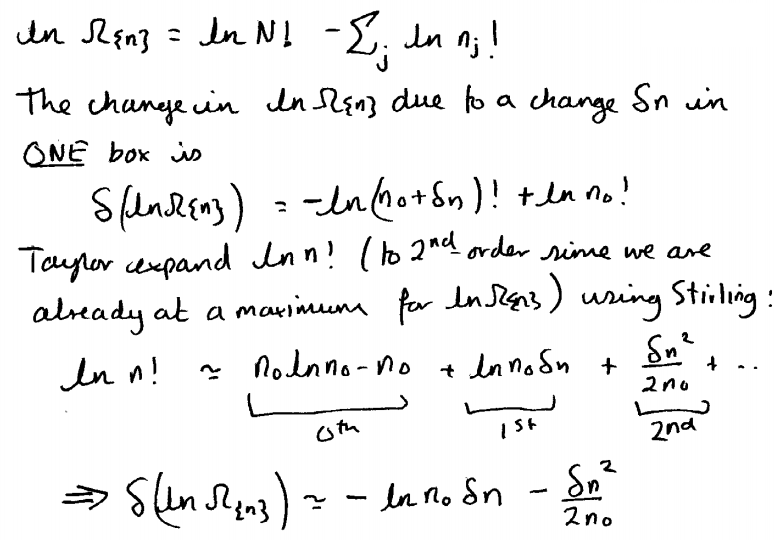 ln Ω{n} = ln N! - Σj ln nj!
The change in ln Ω{n} due to a change δn in
ONE box is
δ(ln Ω{n}) = -ln(n₀+δn)! + ln n₀!
Taylor expand ln n! (to 2nd order since we are
already at a maximum for ln Ω{n}) using Stirling:
ln n! ≃ n₀ ln n₀ - n₀ + ln n₀ δn + δn²/2n₀ + ..
0th 1st 2nd
⇒ δ(ln Ω{n}) ≃ - ln n₀ δn - δn²/2n₀